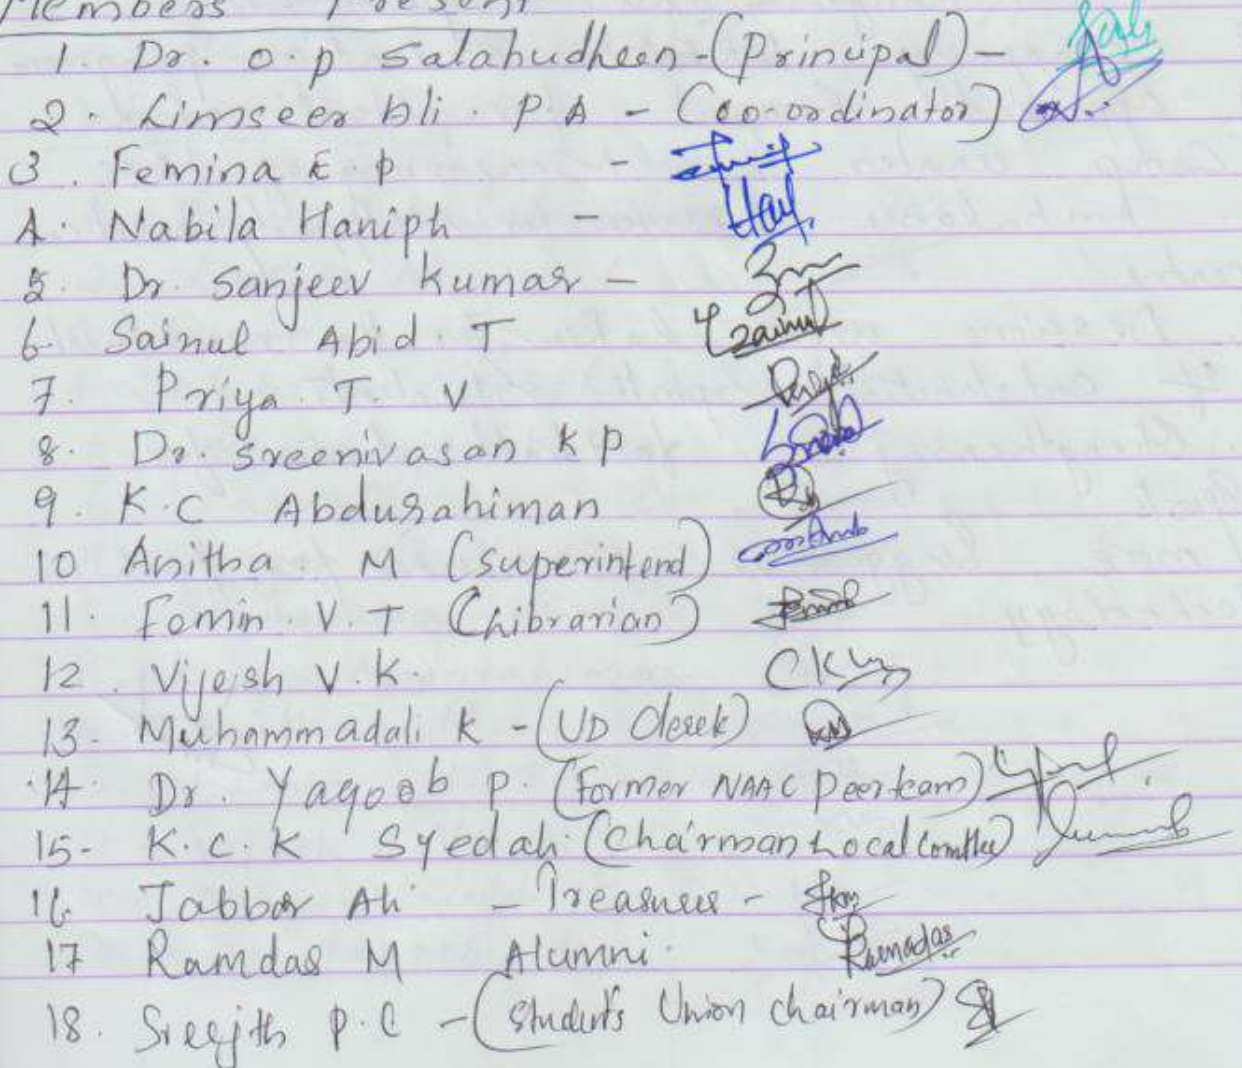 Members Present
1. Dr. O.P Salahudheen - (Principal) -
2. Limseer Ali. P A - (Co-ordinator)
3. Femina E P -
4. Nabila Haniph -
5. Dr. Sanjeev Kumar -
6. Sainul Abid. T
7. Priya. T. V
8. Dr. Sreenivasan K P
9. K.C Abdurahiman
10 Anitha M (Superintend)
11. Fomin. V. T (Librarian)
12. Vijesh V.K.
13. Muhammadali K - (UD Clerek)
14. Dr. Yaqoob P. (Former NAAC Peerteam)
15- K.C.K Syedali (Chairman Local Comttee)
16 Jabbar Ali - Treasurer -
17 Ramdas M Alumni. Ramadas
18. Sreejith P.C - (Students Union Chairman)